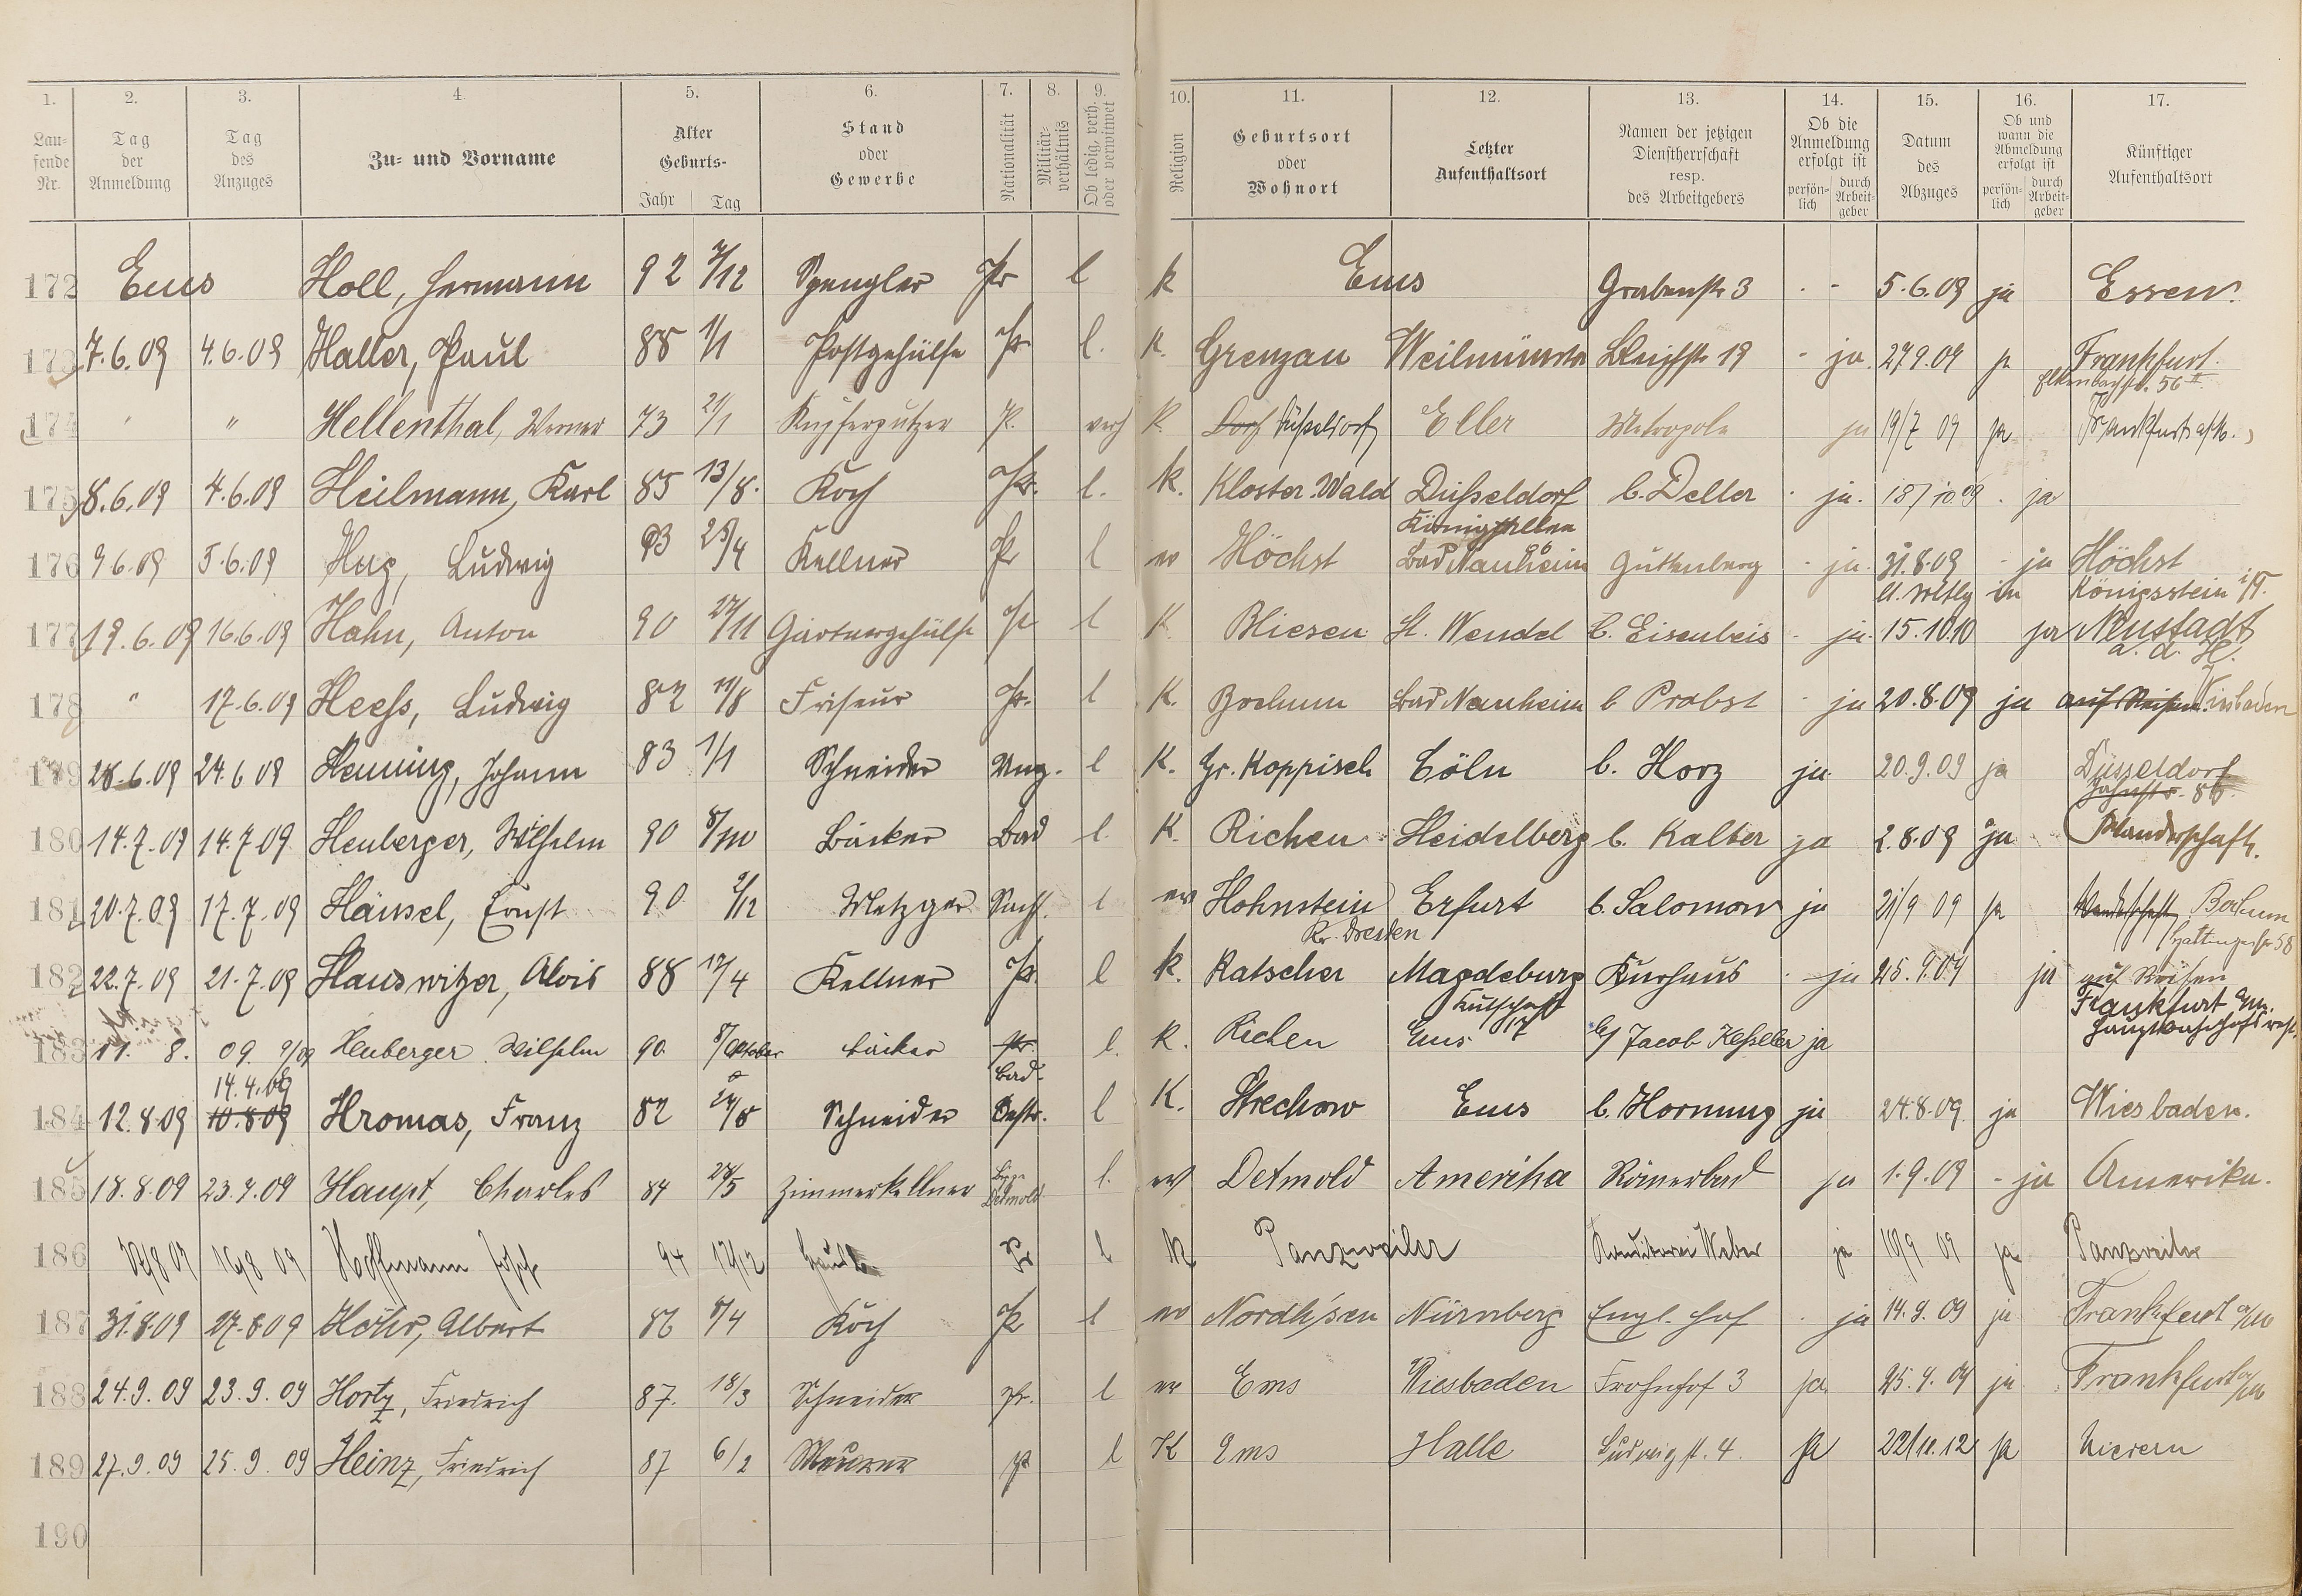 1. 2. 3. 4. 5. 6. 7. 8. 9. 10. 11. 12. 13. 14. 15. 16. 17.
Laufende Nr. Tag der Anmeldung Tag des Anzuges Zu- und Vorname Alter Geburts- Jahr Tag Stand oder Gewerbe Nationalität Militärverhältnis Ob ledig, verh. oder verwitwet Religion Geburtsort oder Wohnort Letzter Aufenthaltsort Namen der jetzigen Dienstherrschaft resp. des Arbeitgebers Ob die Anmeldung erfolgt ist persönlich durch Arbeitgeber Datum des Abzuges Ob und wann die Abmeldung erfolgt ist persönlich durch Arbeitgeber Künftiger Aufenthaltsort
172 Ems Holl, Hermann 92 7/12 Spengler Pr l k Ems Grabenstr 3 - - 5.6.09 ja Essen.
173 7.6.09 4.6.09 Haller, Paul 88 1/1 Postgehülfe Pr l. K. Grenzau Weilmünster Bleichstr 19 - ja. 27.9.09 ja Frankfurt.
56 II
174 " " Hellenthal, Werner 73 21/1 Kupferputzer P. verh K. Düsseldorf Eller Metropole ja 19/7 09 ja Frankfurt a/M.
175 8.6.09 4.6.09 Heilmann, Karl 85 13/8. Koch Pr. l. k. Kloster Wald Düsseldorf b. Deller - ja. 18/10.09 - ja
176 9.6.09 5.6.09 Hug, Ludwig 93 25/4 Kellner Pr l ev Höchst Bad Nauheim Guttenberg - ja. 31.8.09 - ja Höchst
Königsstein i/T.
177 19.6.09 16.6.09 Hahn, Anton 90 27/11 Gärtnergehülfe Pr l K. Bliesen St. Wendel b. Eisenbeis - ja. 15.10.10 ja Neustadt
a. d. H.
178 " 17.6.09 Heess, Ludwig 82 11/8 Friseur Pr. l K. Bochum Bad Nauheim b Probst - ja 20.8.09 ja auf Reisen. Wiesbaden
179 28.6.09 24.6 09 Henning, Johann 83 1/1 Schneider Ung. l K. Gr. Koppisch Cöln b. Horz ja. 20.9.09 ja Düsseldorf
Jahnstr. 86.
180 14.7.09 14.7.09 Heuberger, Wilhelm 90 8/10 Bäcker Bad l. K. Richen Heidelberg b. Kalter ja 2.8.09 ja Wanderschaft.
181 20.7.09 17.7.09 Hänsel, Ernst 90 2/12 Metzger Sachs. l ev Hohnstein Erfurt b. Salomon ja 21/9 09 ja Wanderschaft Bochum
Kr. Dresden Hattingerstr 58
182 22.7.09 21.7.09 Hauswitzer, Alois 88 12/4 Kellner Pr. l k. Ratscher Magdeburg Kurhaus - ja 25.9.09 ja auf Reisen
Frankfurt a/m.
183 11. 8. 09. 9/09 Heuberger Wilhelm 90. 8/Oktober bäcker Pr. l. k. Richen Ems 17 b/ Jacob Kessler ja
14.4.09 Bad.
184 12.8.09 10.8.09 Hromas, Franz 82 24/8 Schneider Oestr. l K. Strechow Ems b. Hornung ja 24.8.09 ja Wiesbaden.
185 18.8.09 23.4.09 Haupt, Charles 84 28/5 Zimmerkellner Detmold l. ev Detmold Amerika Römerbad ja 1.9.09 - ja Amerika.
186 16/8 09 Hoffmann 94 12/12 Pr l K Panzweiler Konditorei Weber ja 10/9 09 ja Panzweiler
187 31.8.09 27.8.09 Höhr, Albert 86 8/4 Koch Pr l ev Nordh'sen Nürnberg Engl. Hof - ja 14.9.09 ja Frankfurt a/m
188 24.9.09 23.9.09 Hortz, Friedrich 87. 18/3 Schneider Pr. l ev Ems Wiesbaden Frohnhof 3 ja 25.9.09 ja Frankfurt a/m
189 27.9.09 25.9.09 Heinz, Friedrich 87 6/2 Maurer Pr l K Ems Halle Ludwigst. 4. ja 22/11.12 ja Nievern
190